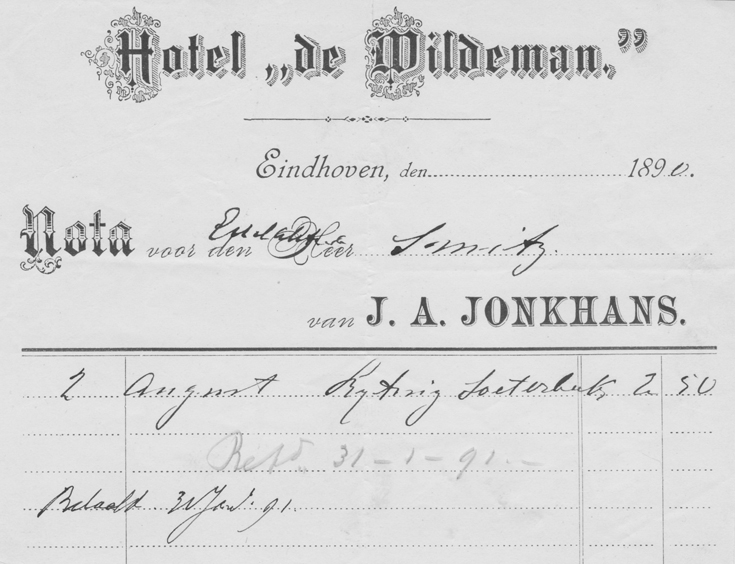 Hotel „de Wildeman.”
Eindhoven, den 1890.
Nota voor den Heer Smitz.
van J. A. JONKHANS.
2 August Rytuig Soeterbeek 2 50
Betd. 31-1-91.-
Betaald 31 Jan. 91.